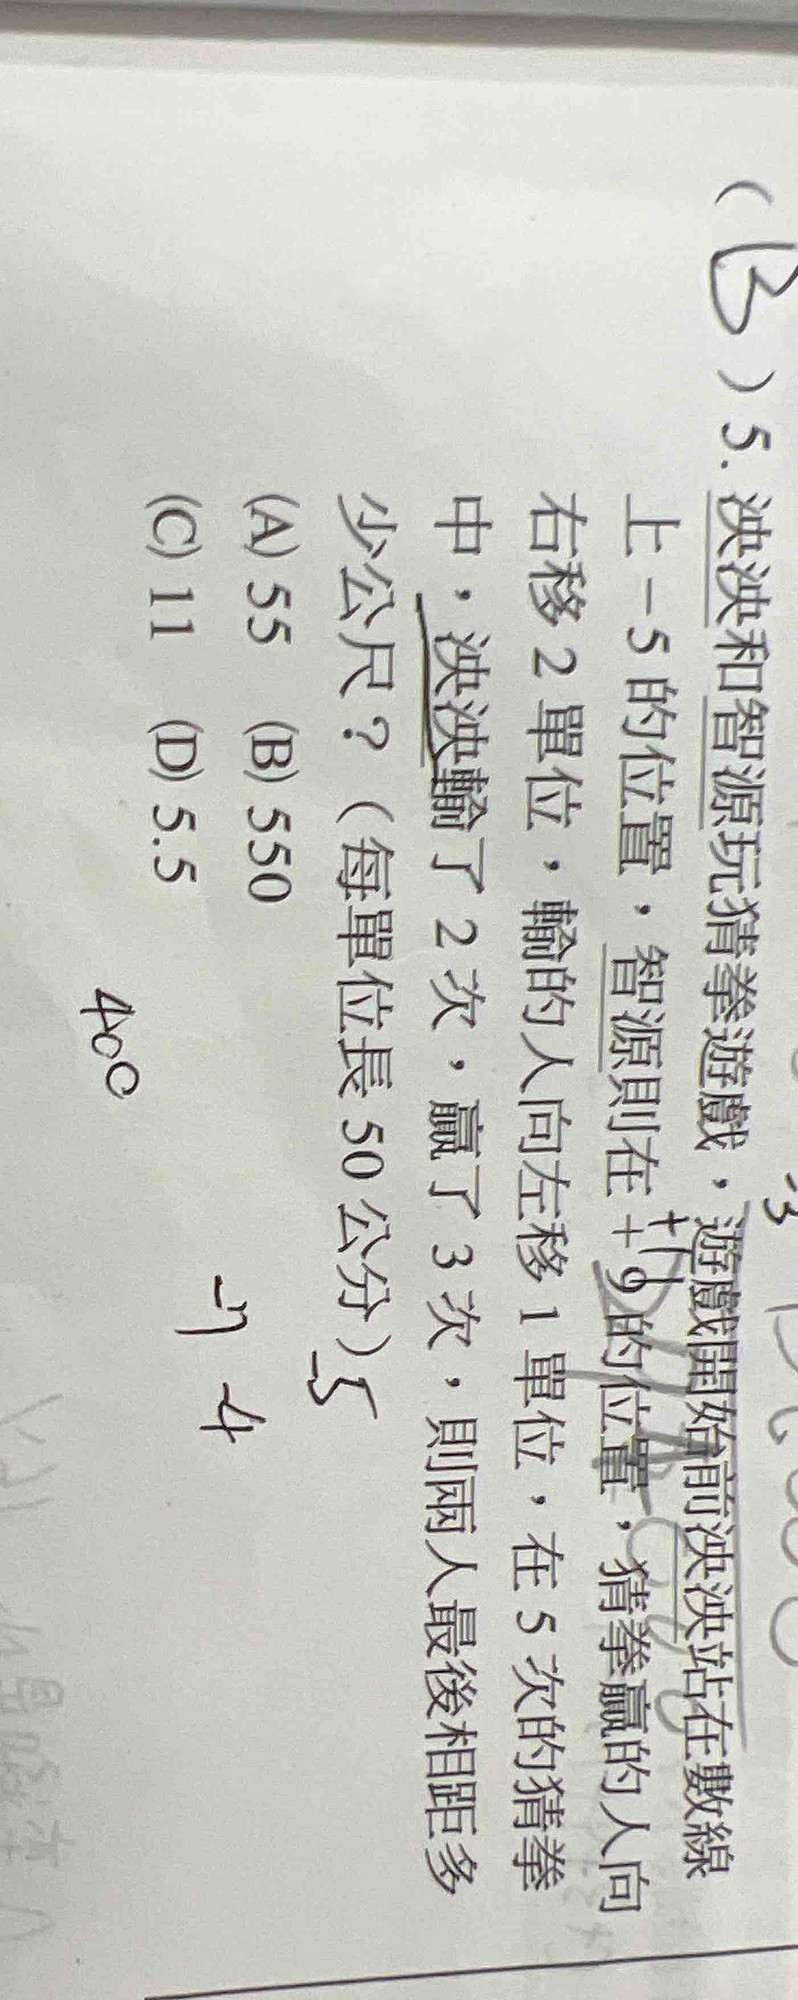 (B) 5. 泱泱和智源玩猜拳遊戲，遊戲開始前泱泱站在數線
上－5的位置，智源則在＋9的位置，猜拳贏的人向
右移2單位，輸的人向左移1單位，在5次的猜拳
中，泱泱輸了2次，贏了3次，則兩人最後相距多
少公尺？（每單位長50公分）
(A) 55 (B) 550
(C) 11 (D) 5.5
-5
-7 -4
400